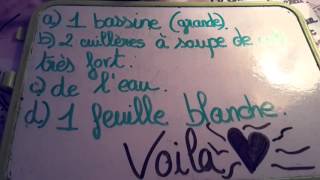 a) 1 bassine (grande).
b) 2 cuillères à soupe de
très fort.
c) de l'eau.
d) 1 feuille blanche.
Voilà